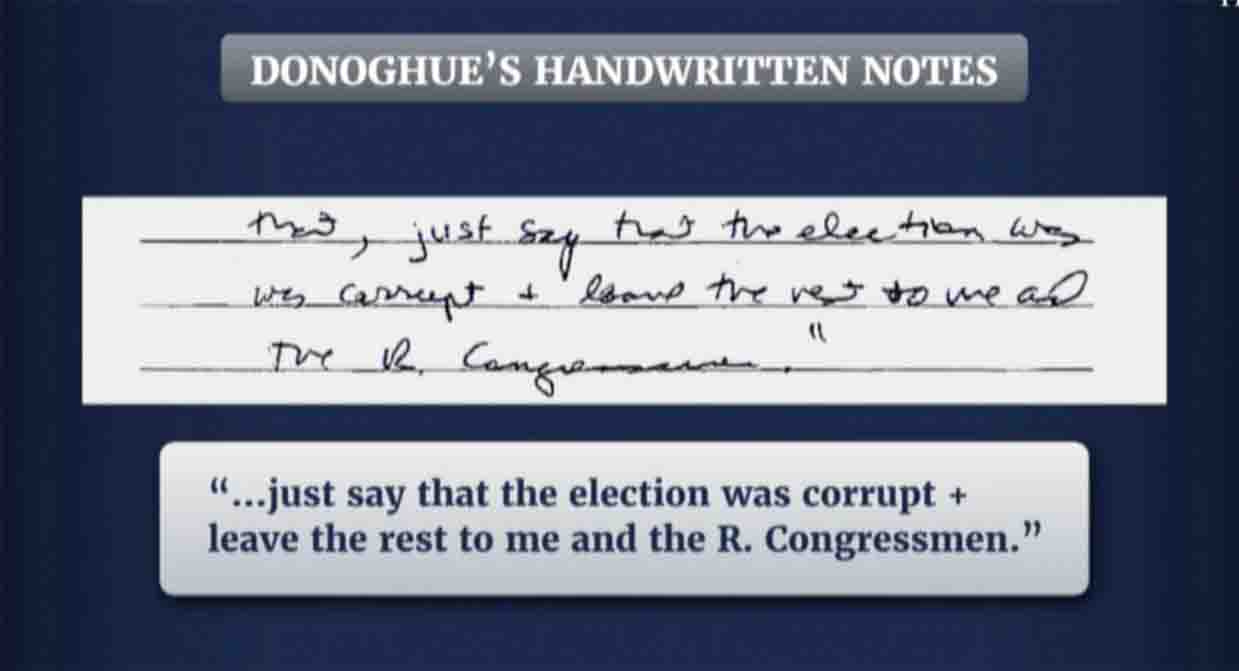 DONOGHUE’S HANDWRITTEN NOTES
that, just say that the election was
was corrupt + leave the rest to me and
the R. Congressmen."
“...just say that the election was corrupt +
leave the rest to me and the R. Congressmen.”